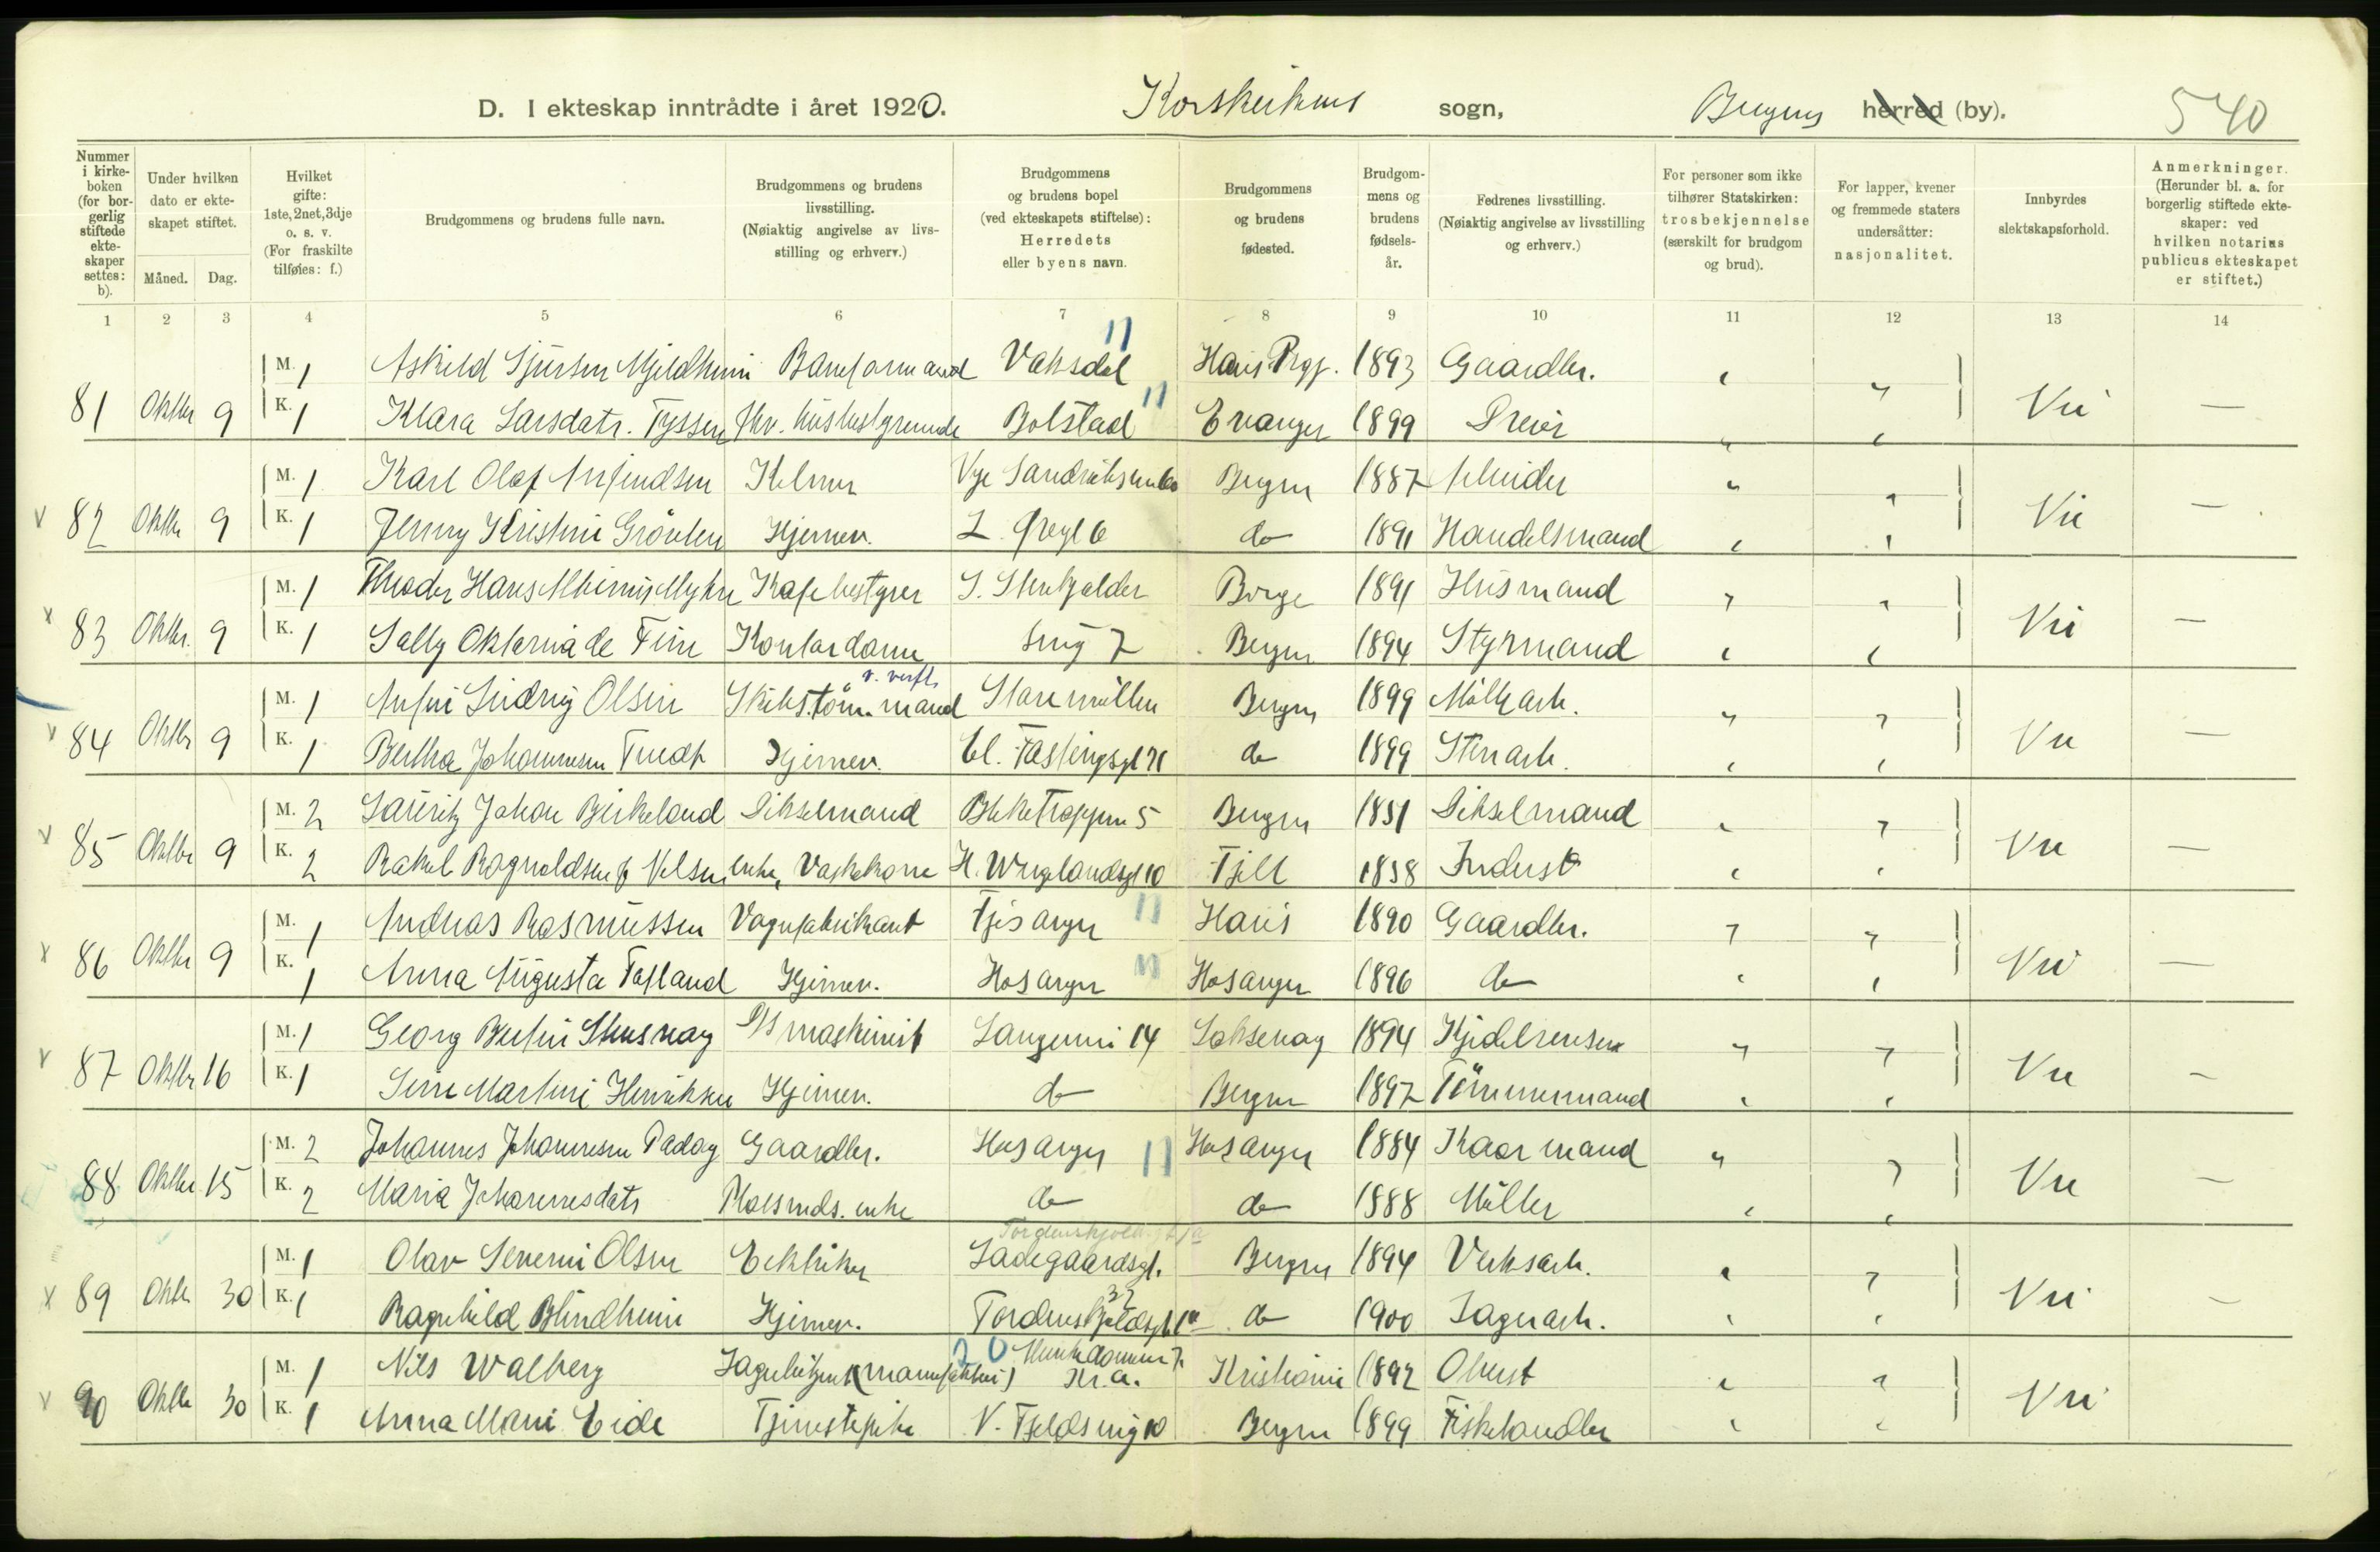 D. I ekteskap inntrådte i året 1920. Korskirkens sogn, Bergens herred (by). 540
Nummer i kirkeboken (for borgerlig stiftede ekteskaper settes: b).
Under hvilken dato er ekteskapet stiftet.
Måned. Dag.
Hvilket gifte: 1ste, 2net, 3dje o. s. v. (For fraskilte tilføies: f.)
Brudgommens og brudens fulle navn.
Brudgommens og brudens livsstilling. (Nøiaktig angivelse av livsstilling og erhverv.)
Brudgommens og brudens bopel (ved ekteskapets stiftelse): Herredets eller byens navn.
Brudgommens og brudens fødested.
Brudgommens og brudens fødselsår.
Fedrenes livsstilling. (Nøiaktig angivelse av livsstilling og erhverv.)
For personer som ikke tilhører Statskirken: trosbekjennelse (særskilt for brudgom og brud).
For lapper, kvener og fremmede staters undersåtter: nasjonalitet.
Innbyrdes slektskapsforhold.
Anmerkninger. (Herunder bl. a. for borgerlig stiftede ekteskaper: ved hvilken notarius publicus ekteskapet er stiftet.)
1 2 3 4 5 6 7 8 9 10 11 12 13 14
M. 1 Askild Sjursen Mjeldheim Baneformand Vaksdal 11 Haus Prgj. 1893 Gaardbr. "
81 Oktbr 9 K. 1 Klara Larsdatr. Tyssen Bolstad 11 Evanger 1899 " Nei —
M. 1 Karl Olaf Arnfindsen Kelner Bergen 1887 "
82 Oktbr 9 K. 1 Jenny Kristine Hjemmev. do 1891 Handelsmand " Nei —
M. 1 Theodor Hans Myhre Kafebestyrer Borge 1891 Husmand "
83 Oktbr. 9 K. 1 Sally Oktavia de Fine Kontordame smug 7 Bergen 1894 Styrmand " Nei —
M. 1 Ludvig Olsen Skibstöm.mand v. verft. Støremøllen Bergen 1899 Mölle arb. "
84 Oktbr 9 K. 1 Bertha Johannesen Tvedt Hjemmev. Cl. Fastingsgt 21 do 1899 Stenarb. " Nei —
M. 2 Lauritz Johan Birkeland Dikselmand Bleketrappen 5 Bergen 1851 Dikselmand "
85 Oktbr 9 K. 2 Rakel Ragnvaldsen f Nilsen enke, Vaskekone H. Wergelandsgt 10 Fjell 1858 Inderst " Nei —
M. 1 Andreas Rasmussen Vognfabrikant Fjøsanger 11 Haus 1890 Gaardbr. "
86 Oktbr 9 K. 1 Anna Augusta Tofland Hjemmev. Hosanger 11 Hosanger 1896 do " Nei —
M. 1 Georg Bertin D/S maskinist 14 Loksevaag 1894 "
87 Oktbr 16 K. 1 Martine Henriksen Hjemmev. do Bergen 1897 Tömmermand " Nei —
M. 2 Johannes Johannesen Padøy Gaardbr. Hosanger 11 Hosanger 1884 Kaarmand "
88 Oktbr 15 K. 2 Maria Johannesdatr enke do do 1888 Möller " Nei —
Tordenskjolds gt 1a
M. 1 Olav Severin Olsen Elektriker Ladegaardsgt. 32 Bergen 1894 Verksarb. "
89 Oktb 30 K. 1 Ragnhild Blindheim Hjemmev. Tordenskjoldsgt 1a do 1900 Lagerarb. " Nei —
M. 1 Nils Walberg Lagerbetjent (manufaktur) 20 Munkdammsv. Kr.a. Kristiania 1892 Oberst "
90 Oktb 30 K. 1 Anna Marie Eide Tjenestepike N. Fjeldsmug 10 Bergen 1899 Fiskehandler " Nei